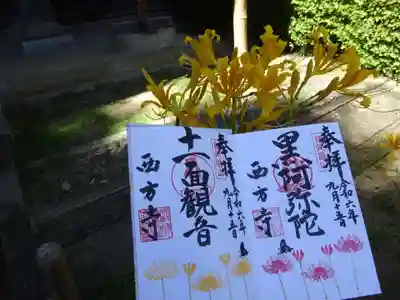 奉拝
令和六年
九月十五日
黒阿弥陀
西方寺
奉拝
令和六年
九月十五日
十一面観音
西方寺